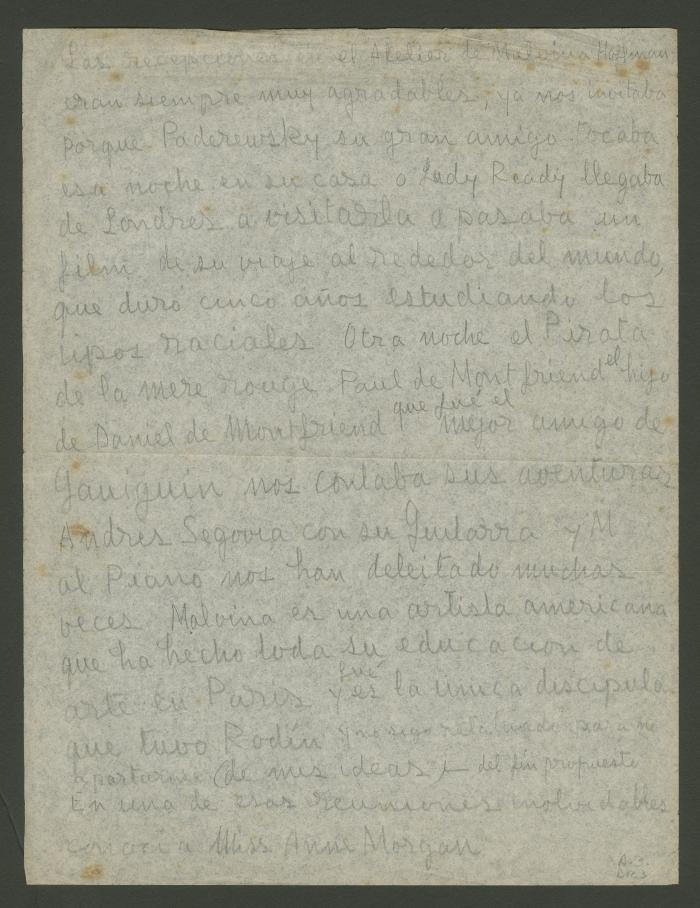 Las recepciones en el Atelier de Malvina Hoffman
eran siempre muy agradables, ya nos invitaba
porque Paderewsky su gran amigo tocaba
esa noche en su casa o Lady Ready llegaba
de Londres a visitarla o pasaba un
film de su viaje al rededor del mundo,
que duró cinco años estudiando los
tipos raciales Otra noche el Pirata
de la mere rouge Paul de Montfriend el hijo
de Daniel de Montfriend que fué el mejor amigo de
Gauiguin nos contaba sus aventuras
Andres Segovia con su Guitarra y M
al Piano nos han deleitado muchas
veces Malvina es una artista americana
que ha hecho toda su educacion de
arte en Paris y fué es la unica discipula
que tuvo Rodín y no sigo relatando para no
apartarme (de mis ideas) del fin propuesto
En una de esas reuniones inolvidables
conocí a Miss Anne Morgan